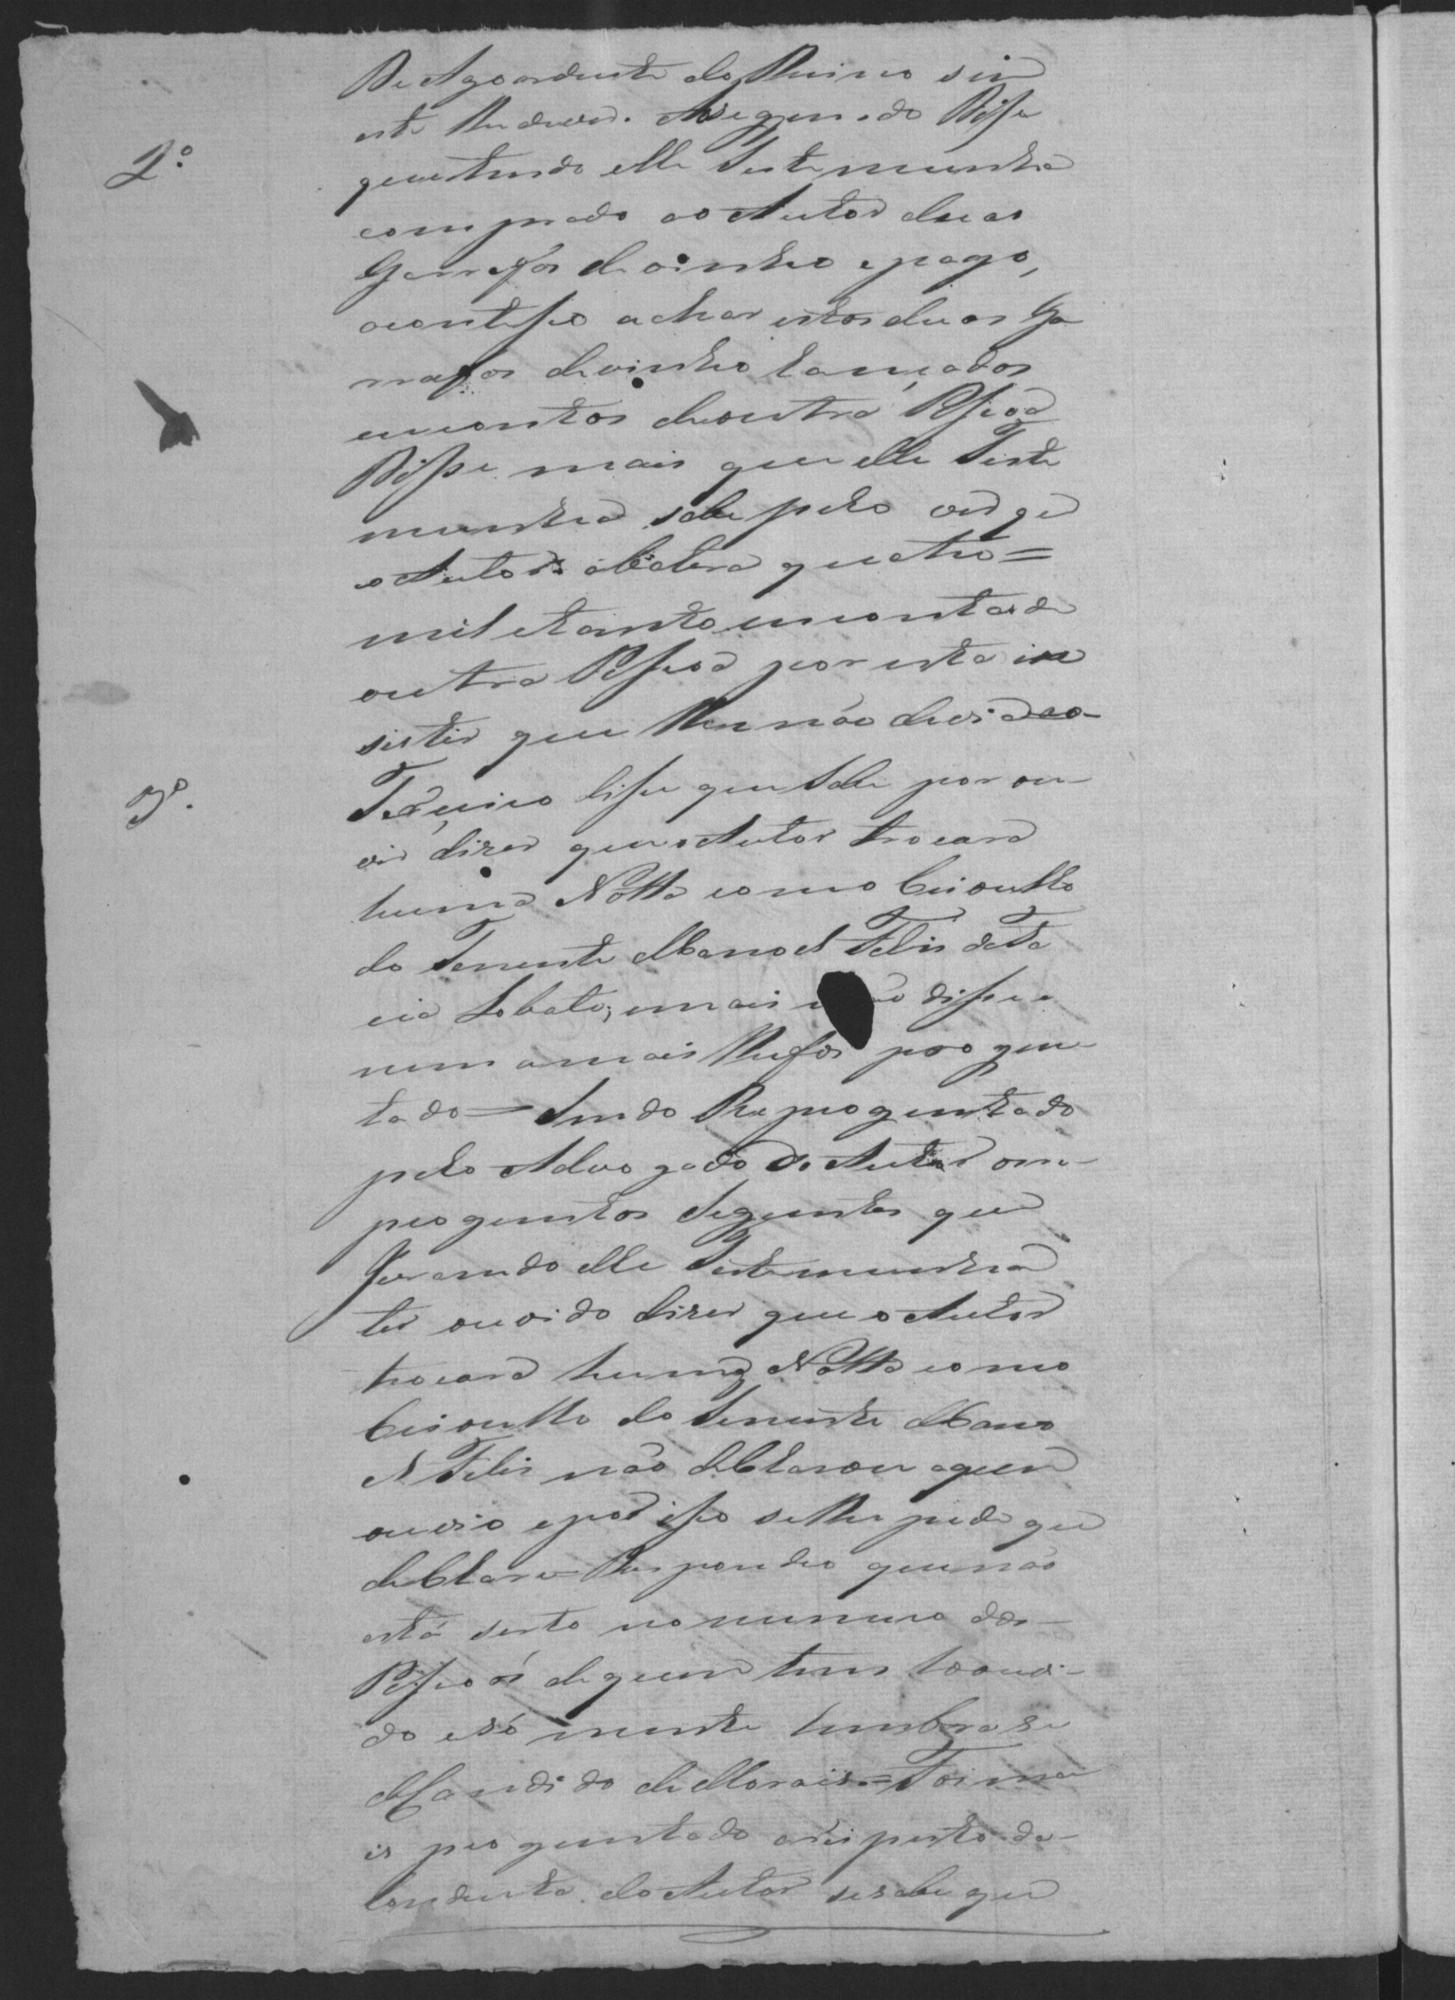 De Agoardente do Reino sin
este Rendeved. Ao segundo Disse
2º
que tendo elle Testemunha
comprado ao Autor duas
Garrafas de vinho e pago,
acontesseo achar estas duas Ga
rrafas de vinho lançados
em contas de outra Pessoa
Disse mais que elle Teste
munha sabe pelo ver q̃
o Autor abatera quatro=
mil e tanto em conta de
outra Pessoa por esta in
sistir que lhe não devia ao
3º.
Terceiro disse que sabe por ou
vir dizer que o Autor trocara
huma Notta como Circullo
do Tenente Manoel Felis da
cia Lobato; e mais não disse e
nem a mais lhe foi proguen
tado= Sendo Reproguntado
pelo Advogado do Autor om
proguntas seguentes que
Jurando elle Testemunha
ter ouvido dizer que o Autor
trocara huma Notta como
Circullo do Tenente Mano
el Felis não declarou a quem
ouvio e por isso se lhe pede que
declare Respondeo que não
está serto no numero das
Pessoas de quem tem houvi-
do e só mente lembra se
Candido de Morais.= Foi ma
is proguntado a respeito da
Conduta do Autor se sabe que